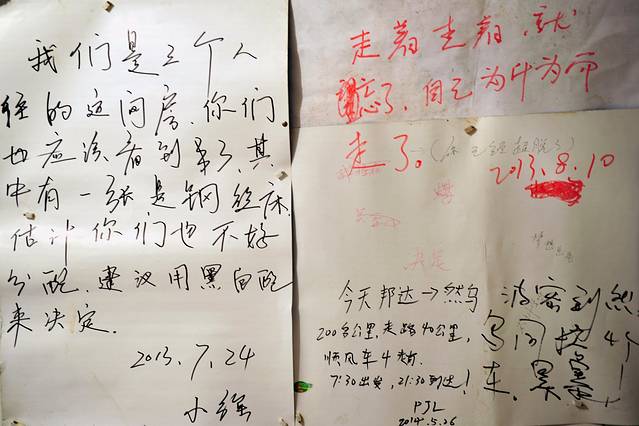 我们是三个人
住的这间房.你们
也应该看到第了,其
中有一张是钢丝床.
估计你们也不好
分配.建议用黑白配
来决定.
2013.7.24
小强
走着走着,就
忘了,自己为什为而
走了。
(你已经超脱了)
2013.8.10
今天邦达→然乌
200多公里,走路40公里,
顺风车4类前.
7:30出发,21:30到达!
PJL
2014.5.26
波密到然
乌间搭4个
车.累晕!